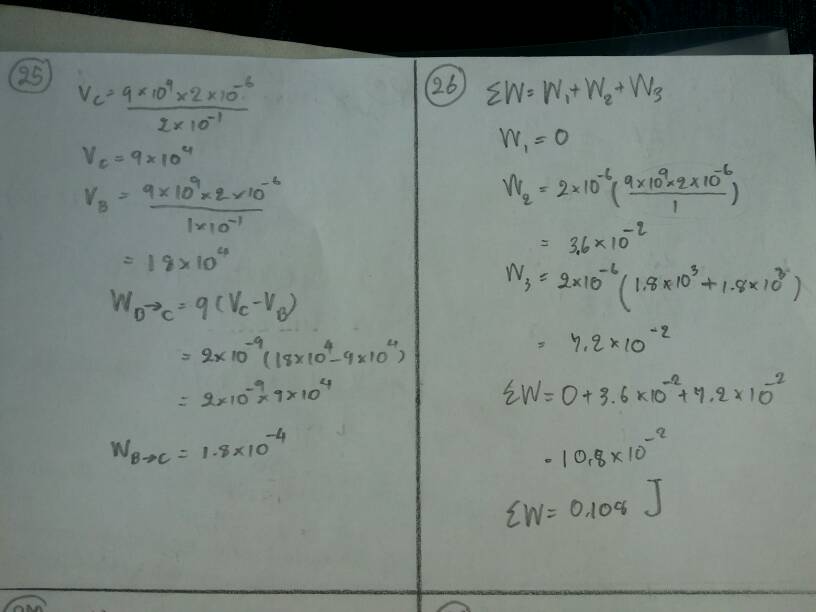 25
V_C = 9×10⁹×2×10⁻⁶ / 2×10⁻¹
V_C = 9×10⁴
V_B = 9×10⁹×2×10⁻⁶ / 1×10⁻¹
= 18×10⁴
W_B→C = q(V_C-V_B)
= 2×10⁻⁹(18×10⁴-9×10⁴)
= 2×10⁻⁹×9×10⁴
W_B→C = 1.8×10⁻⁴
26
ΣW = W₁+W₂+W₃
W₁ = 0
W₂ = 2×10⁻⁶(9×10⁹×2×10⁻⁶ / 1)
= 3.6×10⁻²
W₃ = 2×10⁻⁶(1.8×10³+1.8×10³)
= 7.2×10⁻²
ΣW = 0+3.6×10⁻²+7.2×10⁻²
= 10.8×10⁻²
ΣW = 0.108 J